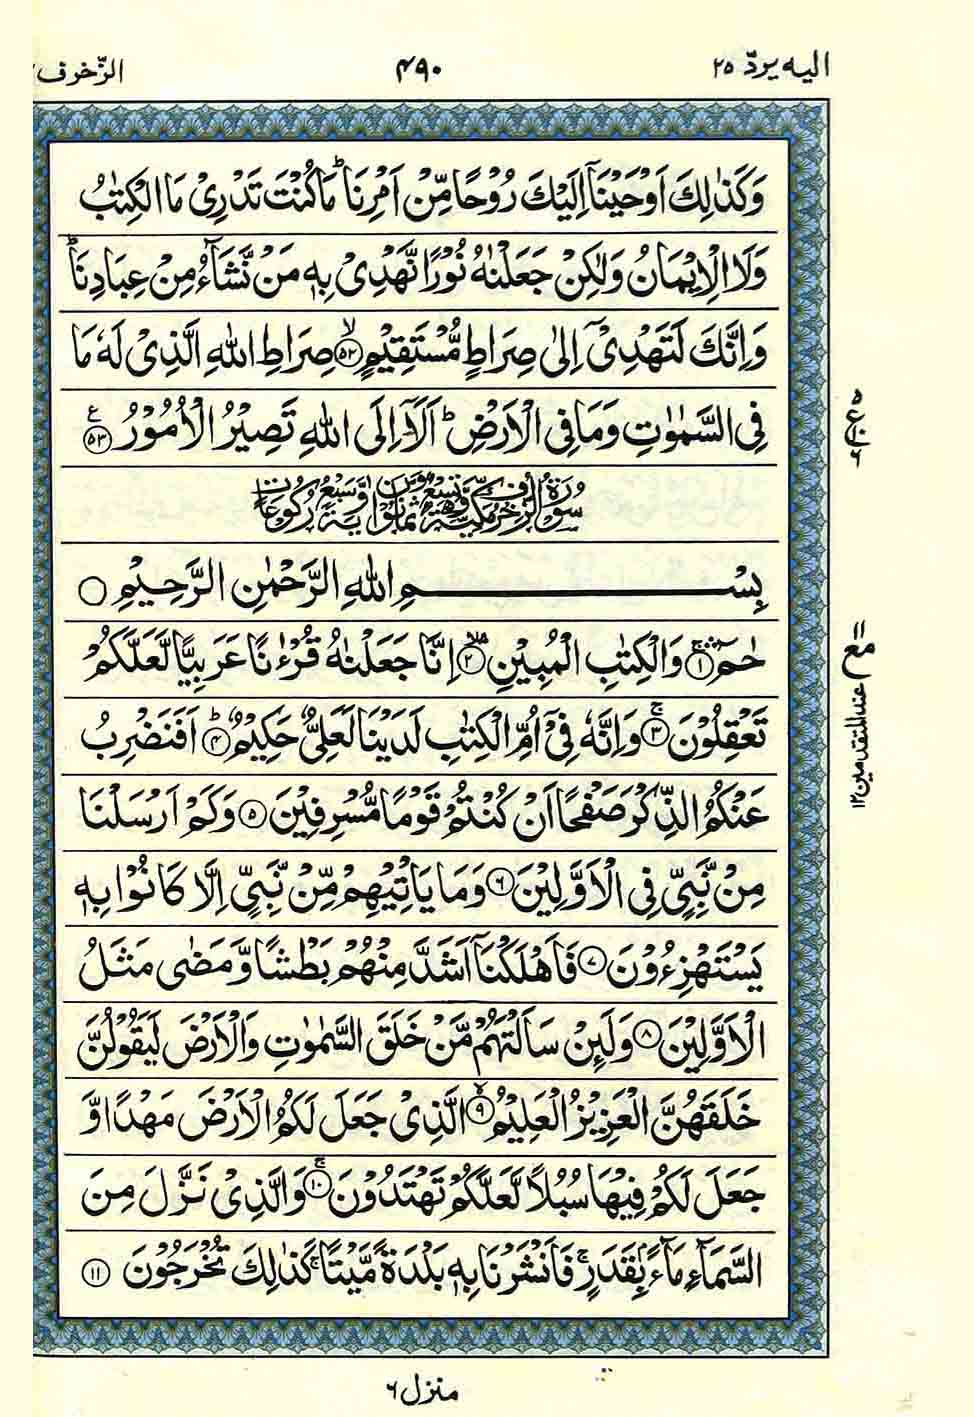 الیه یردّ ۲۵
۴۹۰
الزّخرف
وَكَذٰلِكَ اَوْحَيْنَاۤ اِلَيْكَ رُوْحًا مِّنْ اَمْرِنَا ؕ مَا كُنْتَ تَدْرِىْ مَا الْكِتٰبُ
وَلَا الْاِيْمَانُ وَلٰكِنْ جَعَلْنٰهُ نُوْرًا نَّهْدِىْ بِهٖ مَنْ نَّشَآءُ مِنْ عِبَادِنَا ؕ
وَاِنَّكَ لَتَهْدِىْۤ اِلٰى صِرَاطٍ مُّسْتَقِيْمٍ ۙ﴿۵۲﴾ صِرَاطِ اللّٰهِ الَّذِىْ لَهٗ مَا
فِى السَّمٰوٰتِ وَمَا فِى الْاَرْضِ ؕ اَلَاۤ اِلَى اللّٰهِ تَصِيْرُ الْاُمُوْرُ ﴿۵۳﴾ ع
سُوْرَةُ الزُّخْرُفِ مَكِّيَّةٌ وَّهِىَ تِسْعٌ وَّثَمَانُوْنَ اٰيَةً وَّسَبْعُ رُكُوْعَاتٍ
بِسْمِ اللّٰهِ الرَّحْمٰنِ الرَّحِيْمِ ○
حٰمٓ ۚ﴿۱﴾ وَالْكِتٰبِ الْمُبِيْنِ ۙ﴿۲﴾ اِنَّا جَعَلْنٰهُ قُرْءٰنًا عَرَبِيًّا لَّعَلَّكُمْ
تَعْقِلُوْنَ ۚ﴿۳﴾ وَاِنَّهٗ فِىْۤ اُمِّ الْكِتٰبِ لَدَيْنَا لَعَلِىٌّ حَكِيْمٌ ؕ﴿۴﴾ اَفَنَضْرِبُ
عَنْكُمُ الذِّكْرَ صَفْحًا اَنْ كُنْتُمْ قَوْمًا مُّسْرِفِيْنَ ﴿۵﴾ وَكَمْ اَرْسَلْنَا
مِنْ نَّبِىٍّ فِى الْاَوَّلِيْنَ ﴿۶﴾ وَمَا يَاْتِيْهِمْ مِّنْ نَّبِىٍّ اِلَّا كَانُوْا بِهٖ
يَسْتَهْزِءُوْنَ ﴿۷﴾ فَاَهْلَكْنَاۤ اَشَدَّ مِنْهُمْ بَطْشًا وَّمَضٰى مَثَلُ
الْاَوَّلِيْنَ ﴿۸﴾ وَلَئِنْ سَاَلْتَهُمْ مَّنْ خَلَقَ السَّمٰوٰتِ وَالْاَرْضَ لَيَقُوْلُنَّ
خَلَقَهُنَّ الْعَزِيْزُ الْعَلِيْمُ ۙ﴿۹﴾ الَّذِىْ جَعَلَ لَكُمُ الْاَرْضَ مَهْدًا وَّ
جَعَلَ لَكُمْ فِيْهَا سُبُلًا لَّعَلَّكُمْ تَهْتَدُوْنَ ۚ﴿۱۰﴾ وَالَّذِىْ نَزَّلَ مِنَ
السَّمَآءِ مَآءًۢ بِقَدَرٍ ۚ فَاَنْشَرْنَا بِهٖ بَلْدَةً مَّيْتًا ۚ كَذٰلِكَ تُخْرَجُوْنَ ﴿۱۱﴾
۵ ع ۶
مع
عند المتقدمین ۱۲
منزل ۶